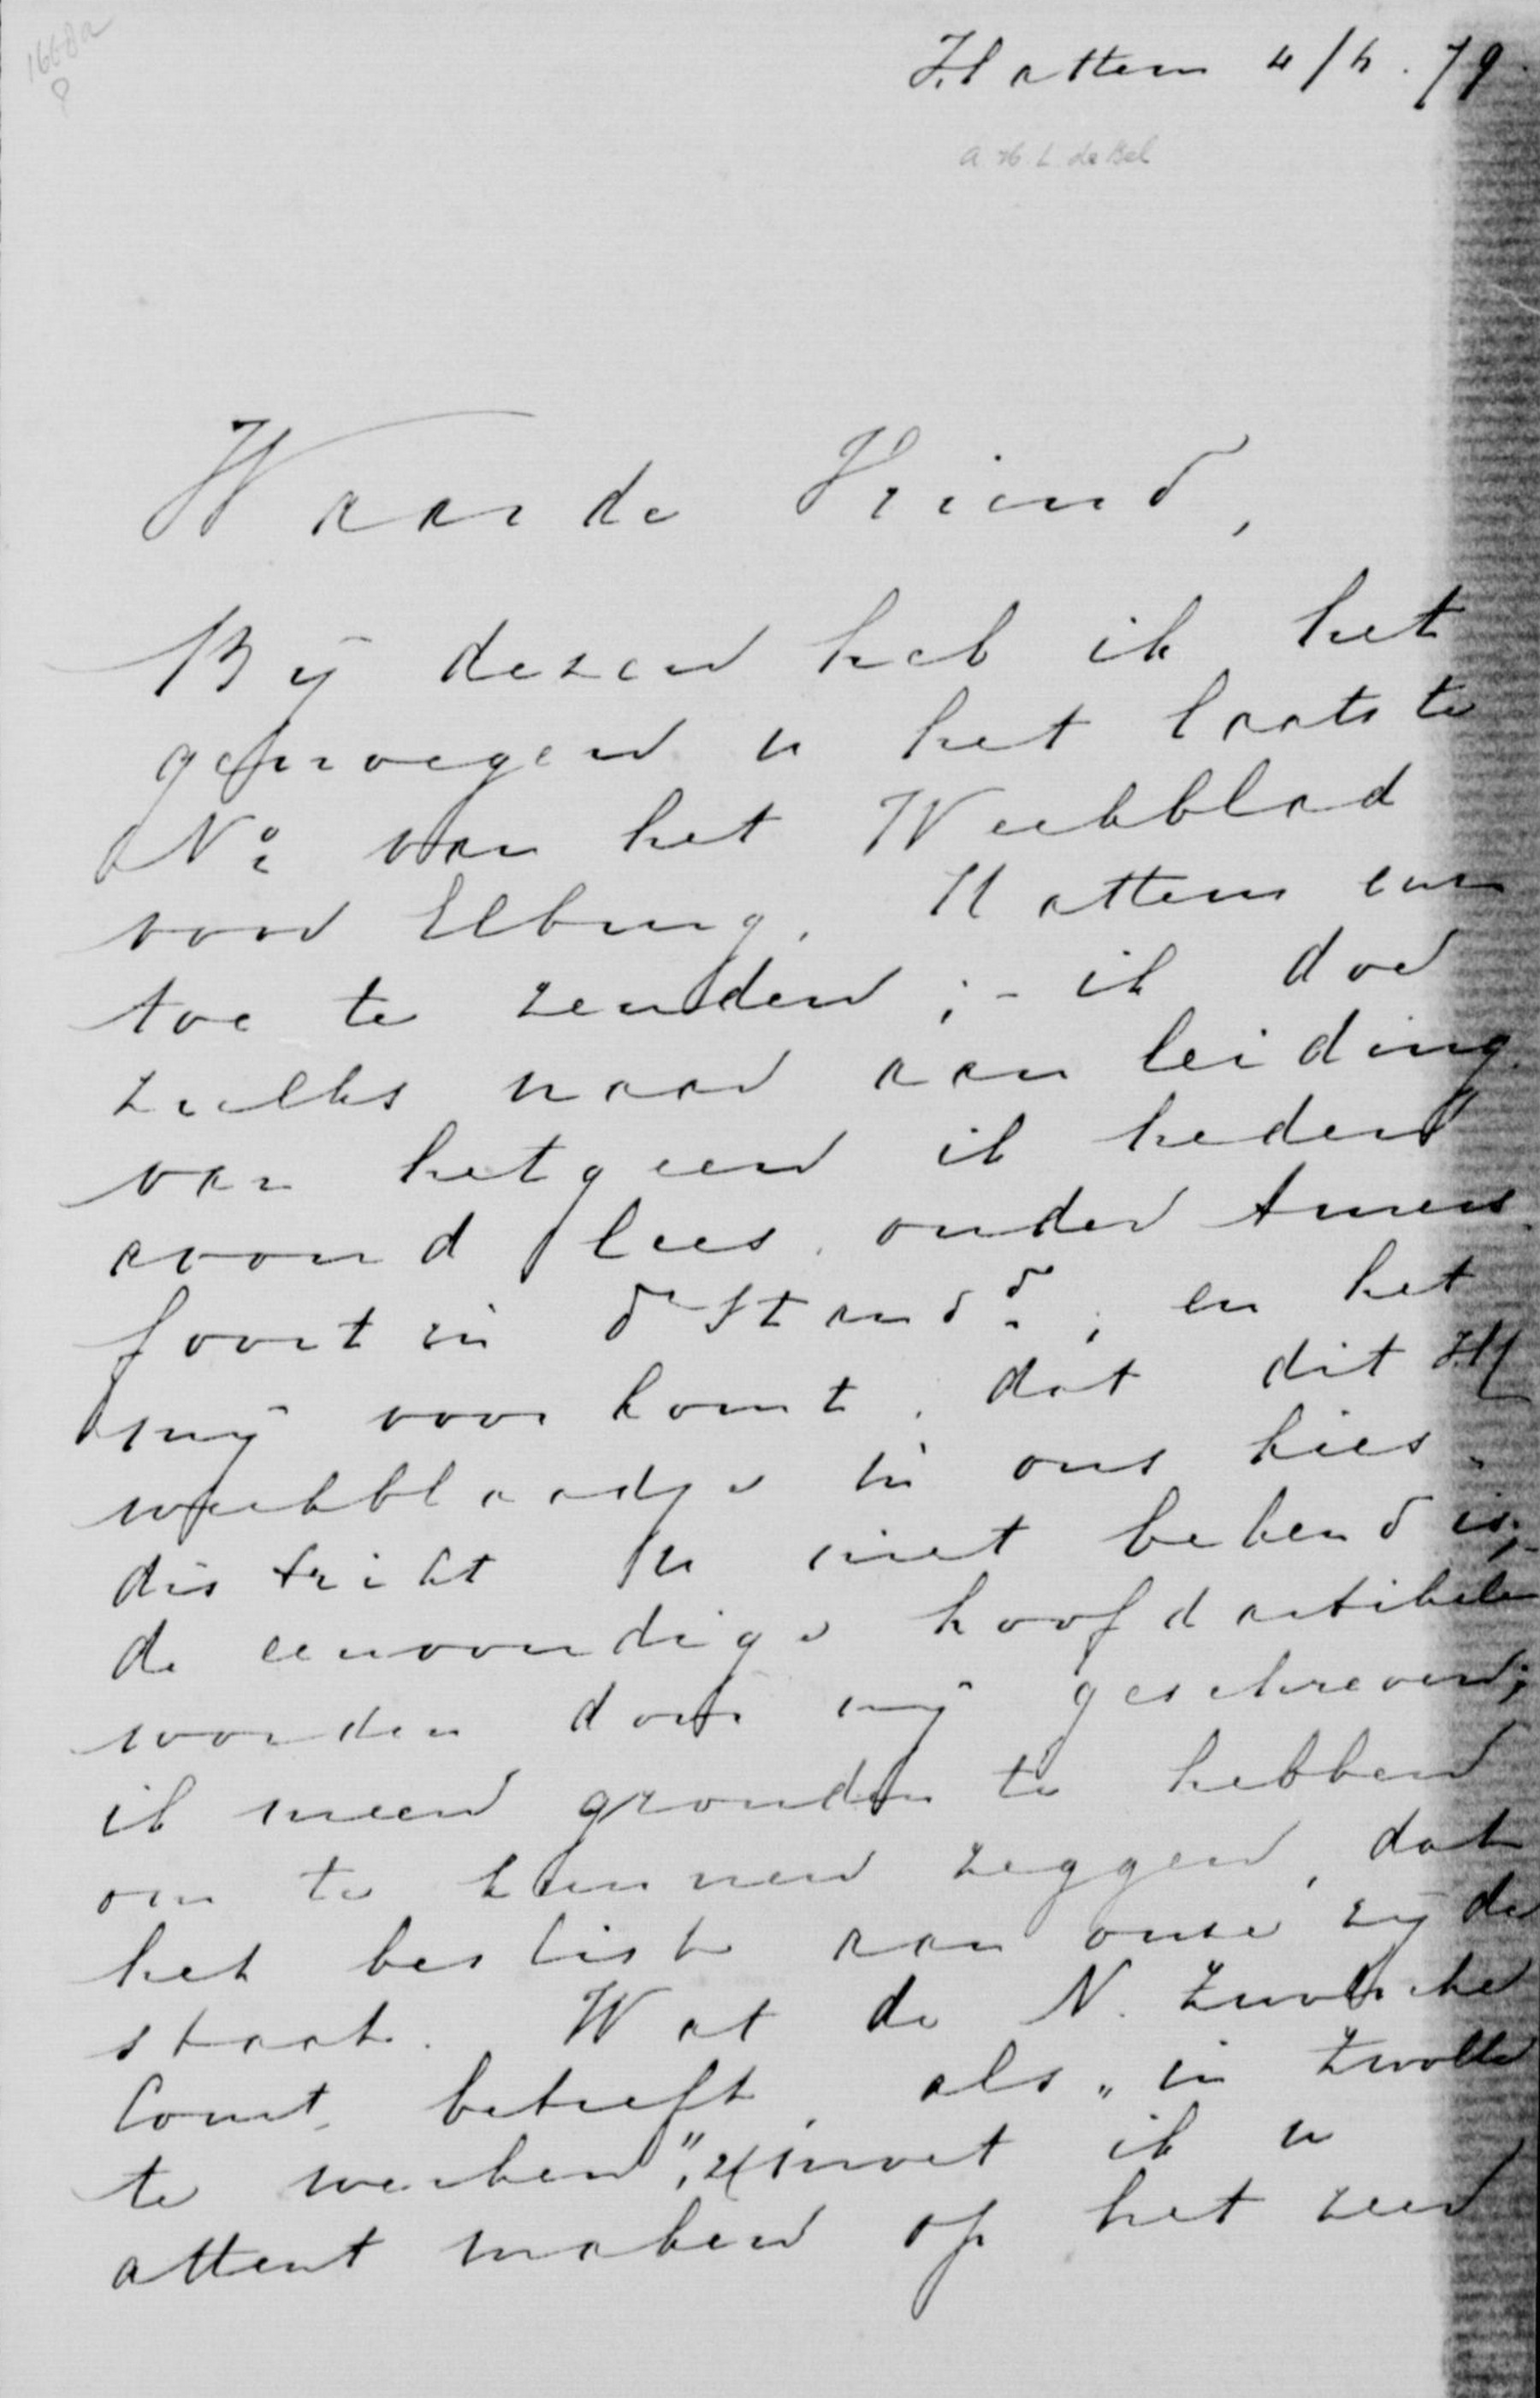 1668a
Hattem 4/6. 79.
a. H. L. de Bel
Waarde Vriend,
Bij dezen heb ik het
genoegen u het laatste
No van het Weekblad
voor Elburg, Hattem enz
toe te zenden; - ik doe
zulks naar aanleiding
van hetgeen ik heden
avond lees onder Amers
foort in de Standd; en het
mij voorkomt, dat dit
weekblaadje in ons kies-
district u niet bekend is;
de eenvoudige hoofdartikelen
worden door mij geschreven;
ik meen gronden te hebben
om te kunnen zeggen, dat
het beslist aan onze zijde
staat. Wat de N. Zwolsche
Cour.t betreft, als "in Zwolle
te werken", moet ik u
attent maken op het zeer